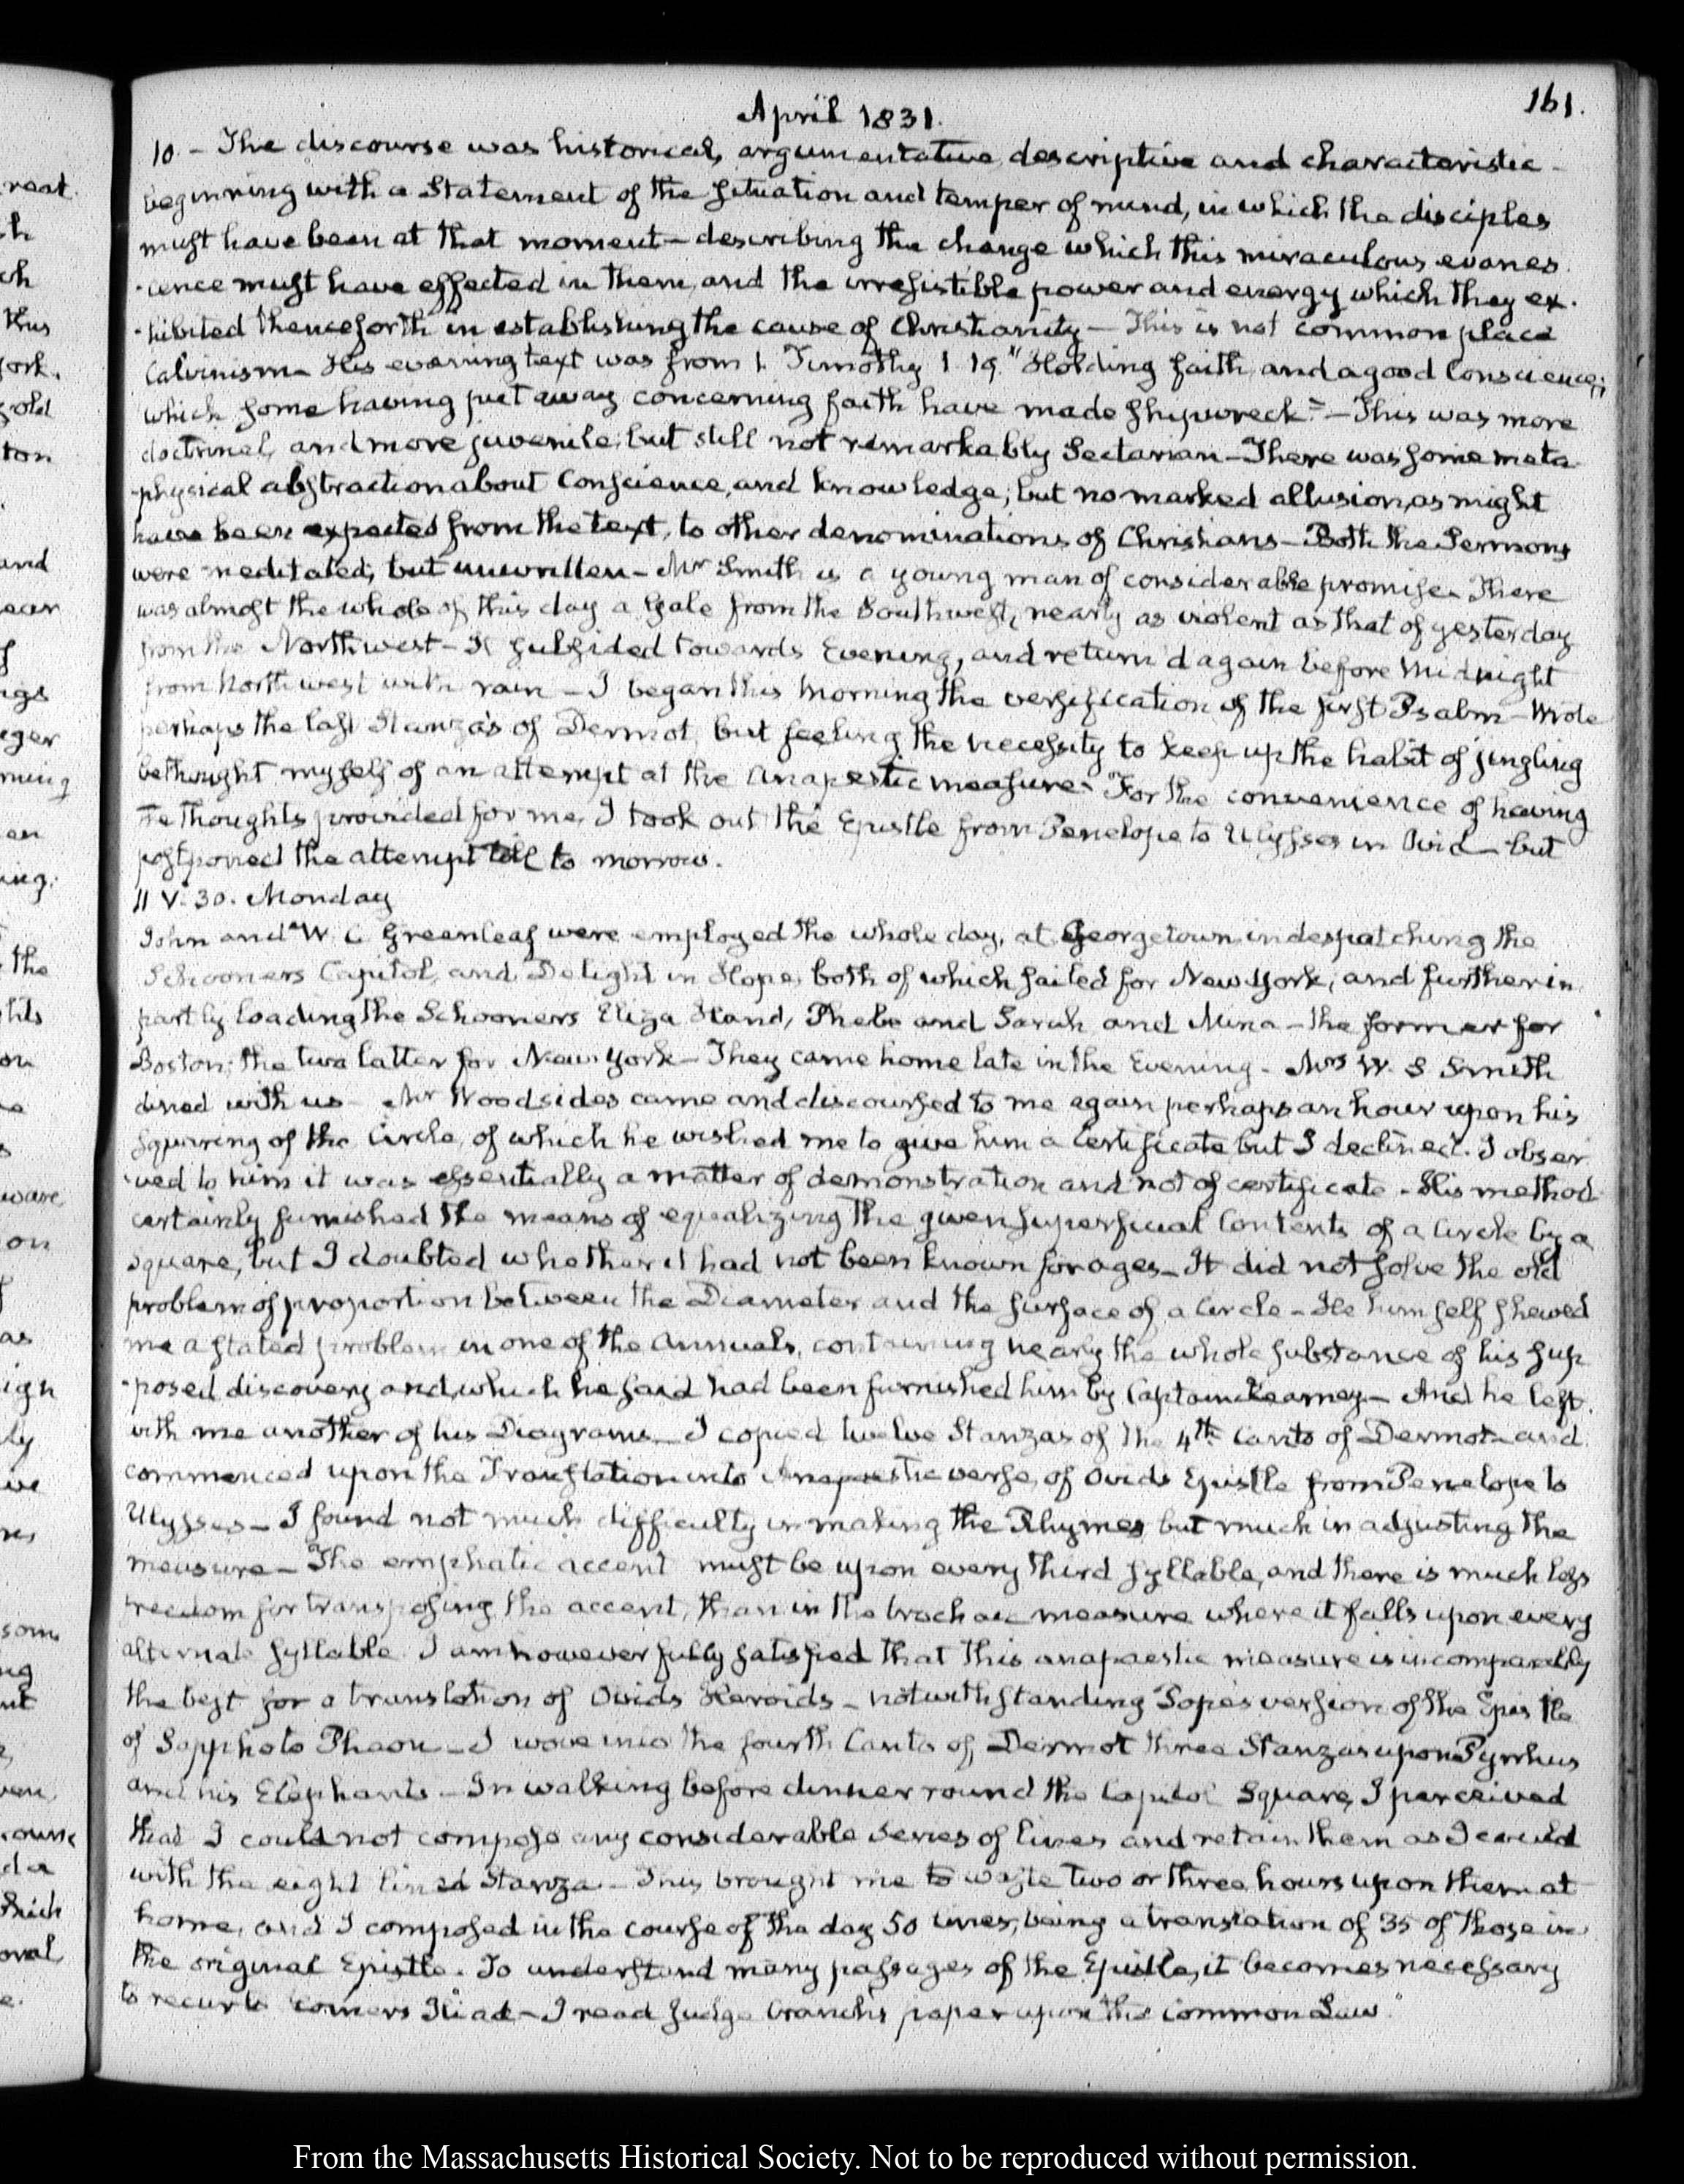 161.
April 1831.
10. - The discourse was historical, argumentative, descriptive and characteristic -
beginning with a Statement of the situation and temper of mind, in which the disciples
must have been at that moment - describing the change which this miraculous evanes
-cence must have effected in them, and the irresistible power and energy which they ex-
-hibited thenceforth in establishing the cause of Christianity - This is not common place
Calvinism - His evening text was from 1. Timothy 1. 19. "Holding faith, and a good Conscience;
which some having put away concerning faith have made shipwreck." - This was more
doctrinal, and more juvenile; but still not remarkably Sectarian - There was some meta-
-physical abstraction about Conscience, and knowledge; but no marked allusion, as might
have been expected from the text, to other denominations of Christians - Both the Sermons
were meditated, but unwritten - Mr Smith is a young man of considerable promise - There
was almost the whole of this day a Gale from the Southwest, nearly as violent as that of yesterday
from the Northwest - It subsided towards Evening, and return'd again before Midnight
from Northwest with rain - I began this Morning the versification of the first Psalm - Wrote
perhaps the last Stanza's of Dermot, but feeling the necessity to keep up the habit of jingling
bethought myself of an attempt at the Anapestic measure - For the convenience of having
the thoughts provided for me, I took out the Epistle from Penelope to Ulysses in Ovid - but
postponed the attempt till to morrow.
11 V. 30. Monday
John and W. C. Greenleaf were employed the whole day, at Georgetown in despatching the
Schooners Capitol, and Delight in Hope, both of which sailed for New York; and further in
partly loading the Schooners Eliza Hand, Phebe and Sarah and Mina - the former for
Boston; the two latter for New York - They came home late in the Evening - Mrs W. S. Smith
dined with us - Mr Woodsides came and discoursed to me again perhaps an hour upon his
squaring of the Circle, of which he wished me to give him a Certificate but I declined. I obser
-ved to him it was essentially a matter of demonstration and not of certificate - His method
certainly furnished the means of equalizing the given superficial Contents of a Circle by a
square; but I doubted whether it had not been known for ages - It did not solve the old
problem of proportion between the Diameter and the surface of a Circle - He himself shewed
me a stated problem in one of the Annuals, containing nearly the whole substance of his sup
-posed discovery and which he said had been furnished him by Captain Kearney - And he left
with me another of his Diagrams - I copied twelve Stanzas of the 4th Canto of Dermot and
commenced upon the Translation into Anapestic verse, of Ovids Epistle from Penelope to
Ulysses - I found not much difficulty in making the Rhymes but much in adjusting the
measure - The emphatic accent must be upon every third syllable, and there is much less
freedom for transposing the accent, than in the measure where it falls upon every
alternate syllable. I am however fully satisfied that this anapaestic measure is incomparably
the best for a translation of Ovids Heroids - notwithstanding Popes version of the Epistle
of Sappho to Phaon - I wove into the fourth Canto of Dermot three Stanzas upon Pyrrhus
and his Elephants - In walking before dinner round the Capitol Square, I perceived
that I could not compose any considerable series of lines and retain them as I could
with the eight lined Stanza - This brought me to waste two or three hours upon them at
home, and I composed in the course of the day 50 lines, being a translation of 35 of those in
the original Epistle. To understand many passages of the Epistle, it becomes necessary
to recur to Homers Iliad - I read Judge Cranch's paper upon the Common Law.
From the Massachusetts Historical Society. Not to be reproduced without permission.